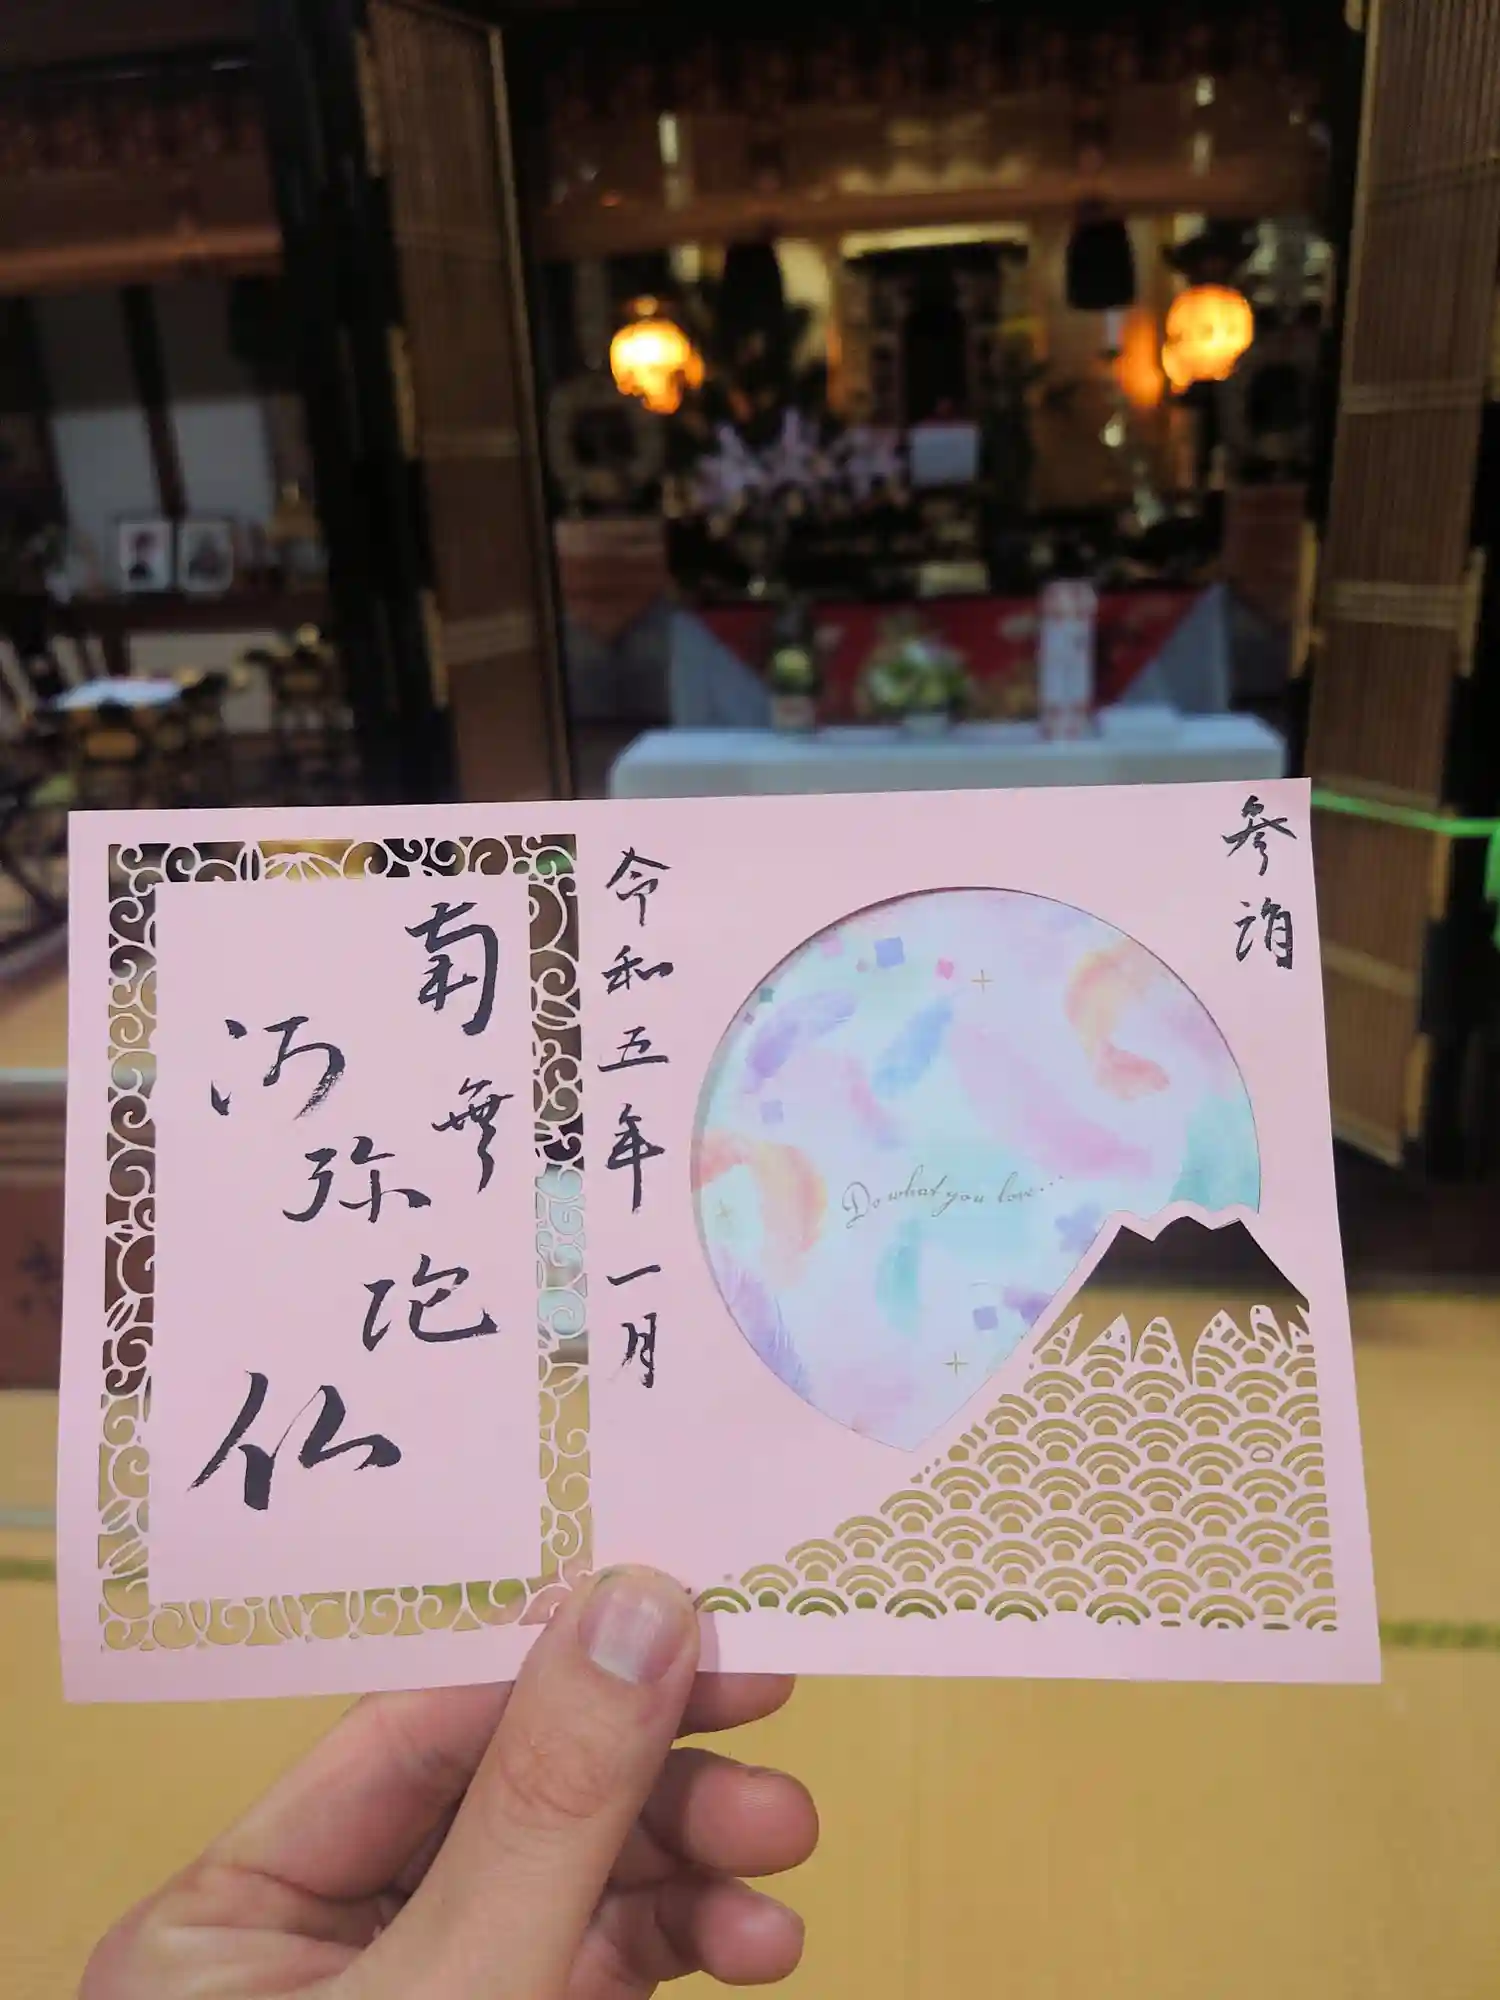 参詣
Do what you love...
令和五年一月
南無
阿弥陀
仏